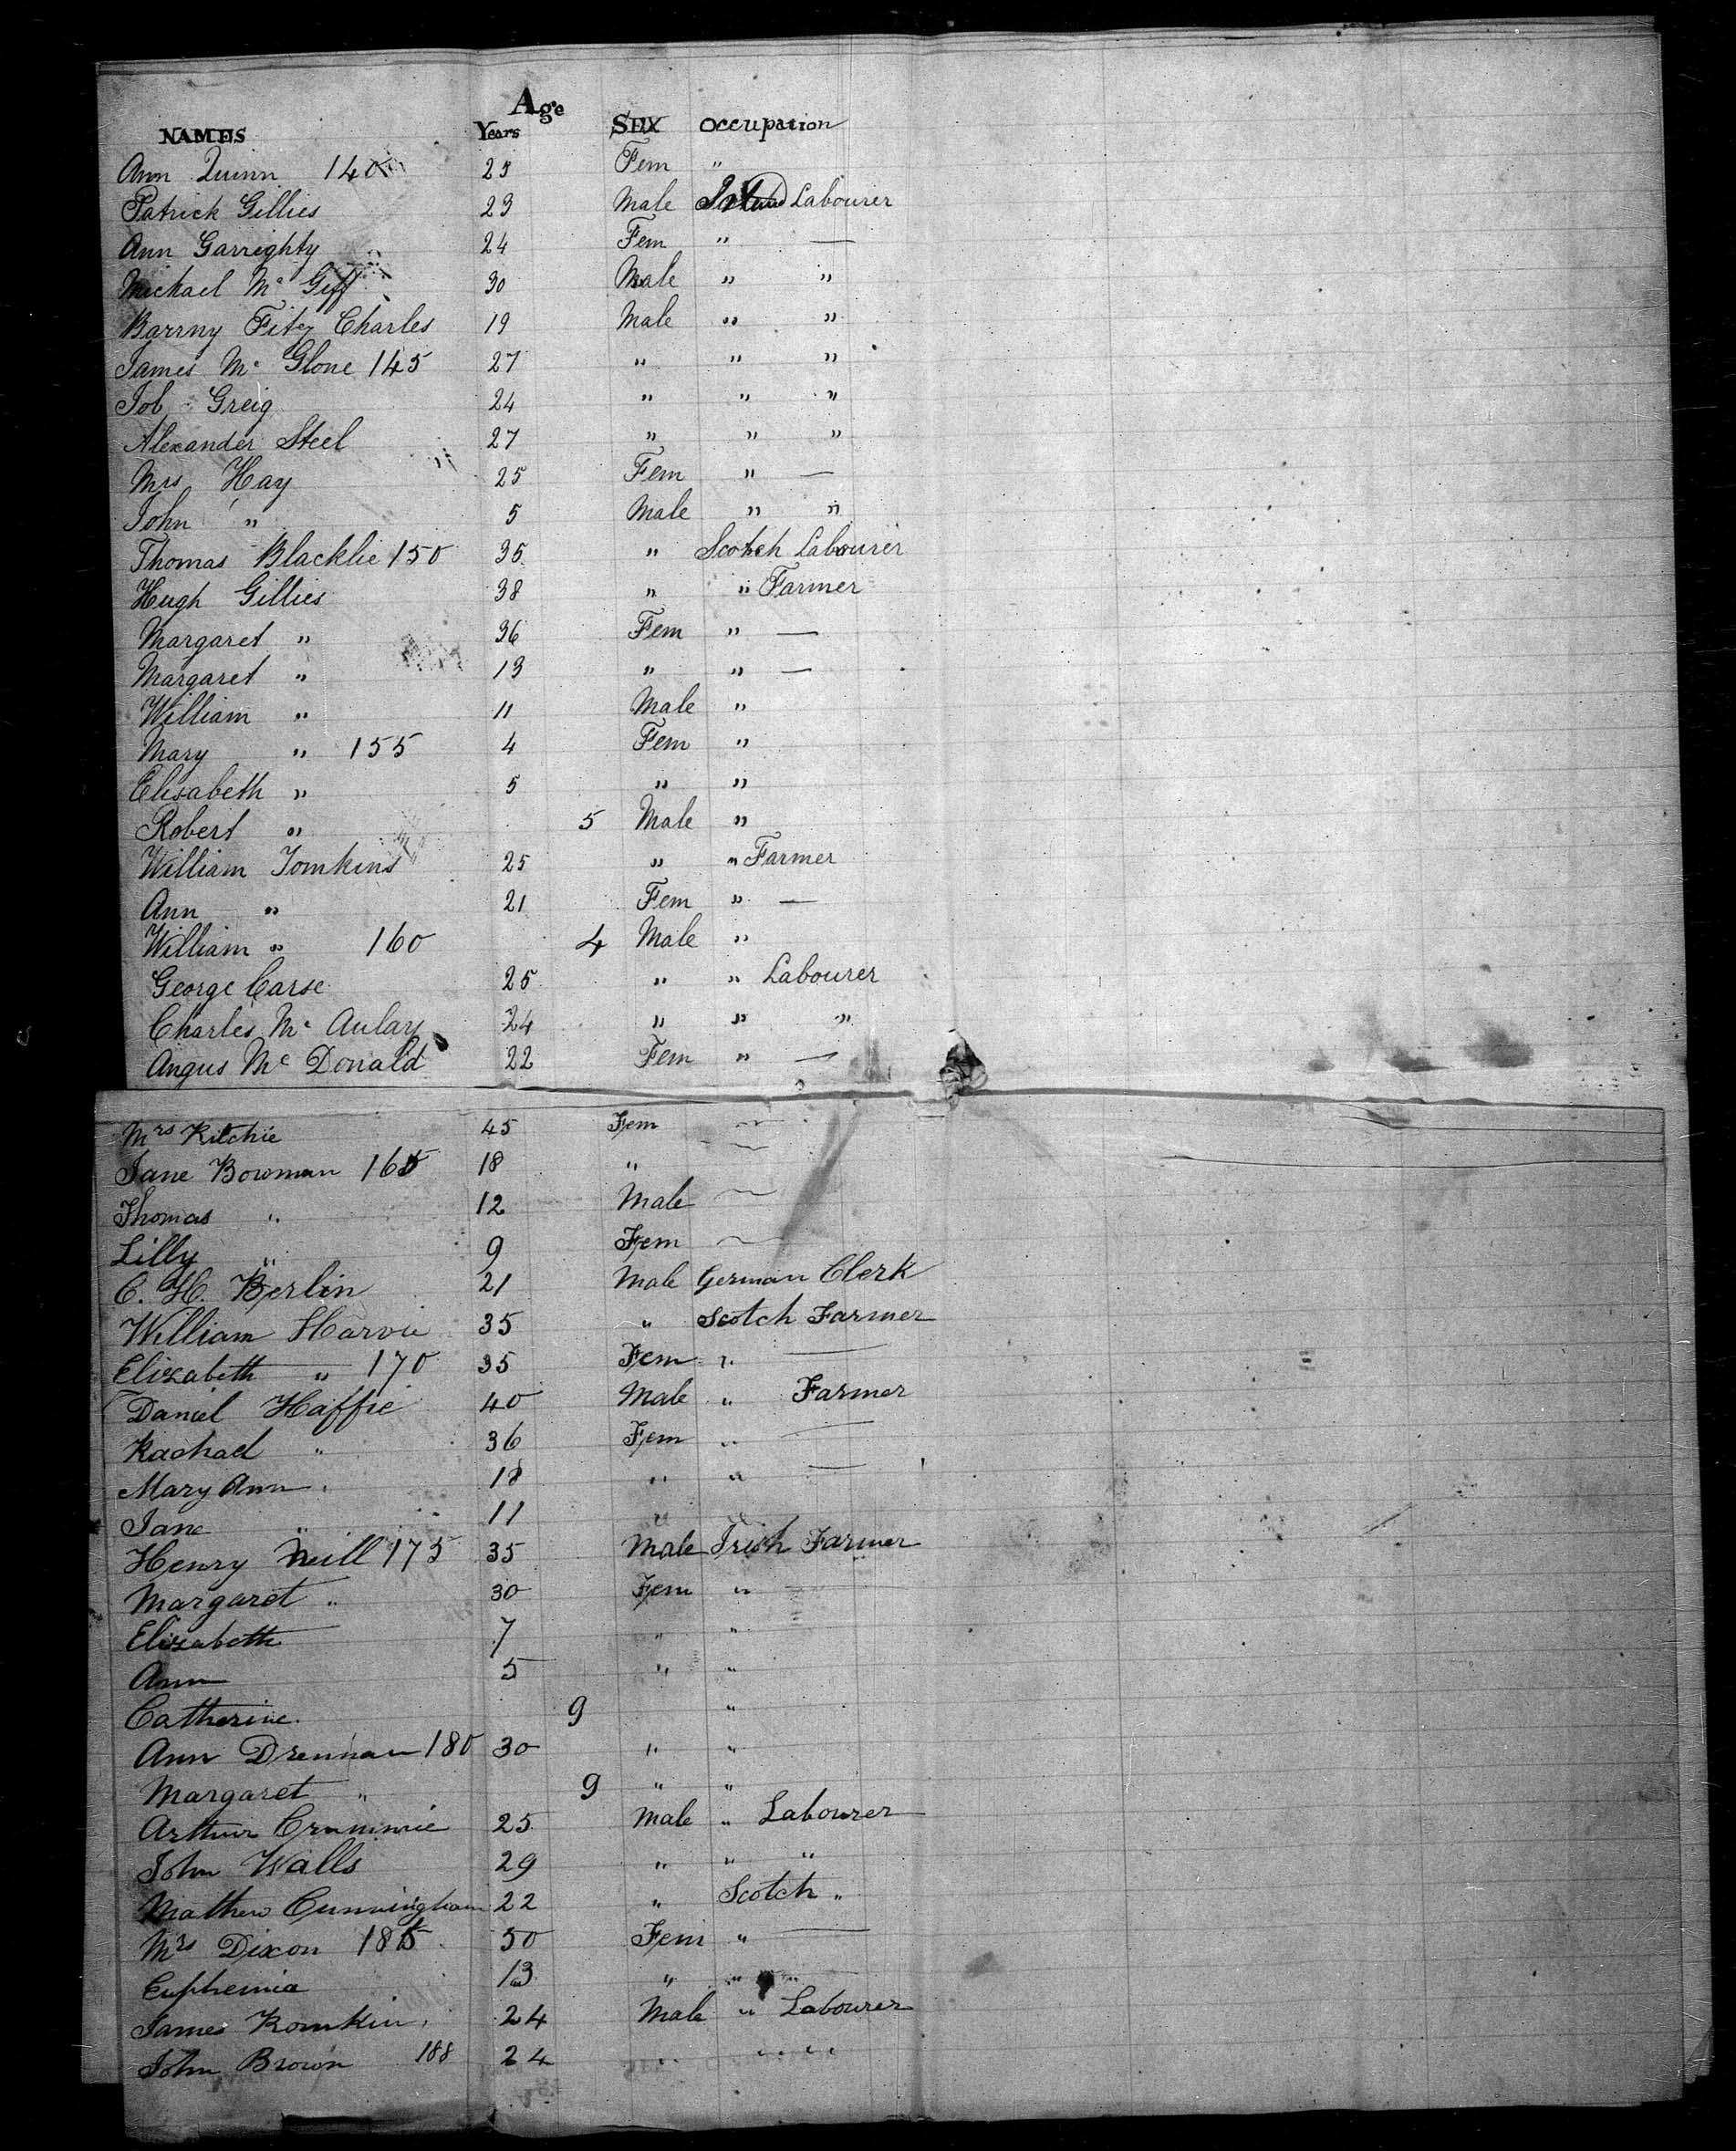 Age
NAMES Years SEX Occupation
Ann Quinn 140 25 Fem "
Patrick Gillies 23 Male Labourer
Ann Garrighty 24 Fem " —
Michael Mc Giff 30 Male " "
Barrny Fitz Charles 19 Male " "
James Mc Glone 145 27 " " "
Job Greig 24 " " "
Alexander Steel 27 " " "
Mrs Hay 25 Fem " —
John " 5 Male " "
Thomas Blacklie 150 35 " Scotch Labourer
Hugh Gillies 38 " " Farmer
Margaret " 36 Fem " —
Margaret " 13 " " —
William " 11 Male "
Mary " 155 4 Fem "
Elisabeth " 5 " "
Robert " 5 Male "
William Tomkins 25 " " Farmer
Ann " 21 Fem " —
William " 160 4 Male "
George Carse 25 " " Labourer
Charles Mc Aulay 24 " " "
Angus Mc Donald 22 Fem " —
Mrs Ritchie 45 Fem —
Jane Bowman 165 18 " —
Thomas " 12 Male —
Lilly " 9 Fem —
C. H. Berlin 21 Male German Clerk
William Harvie 35 " Scotch Farmer
Elizabeth " 170 35 Fem " —
Daniel Haffie 40 Male " Farmer
Rachael " 36 Fem " —
Mary Ann " 18 " " —
Jane " 11 " "
Henry Neill 175 35 Male Irish Farmer
Margaret " 30 Fem " —
Elizabeth 7 " "
Ann 5 " "
Catherine 9 "
Ann Drennan 180 30 " "
Margaret " 9 " "
Arthur Crummie 25 Male " Labourer
John Walls 29 " " "
Mathew Cunningham 22 " Scotch "
Mrs Dixon 185 50 Fem " —
Euphemia 13 " " "
James Romkin 24 Male " Labourer
John Brown 188 24 " " "